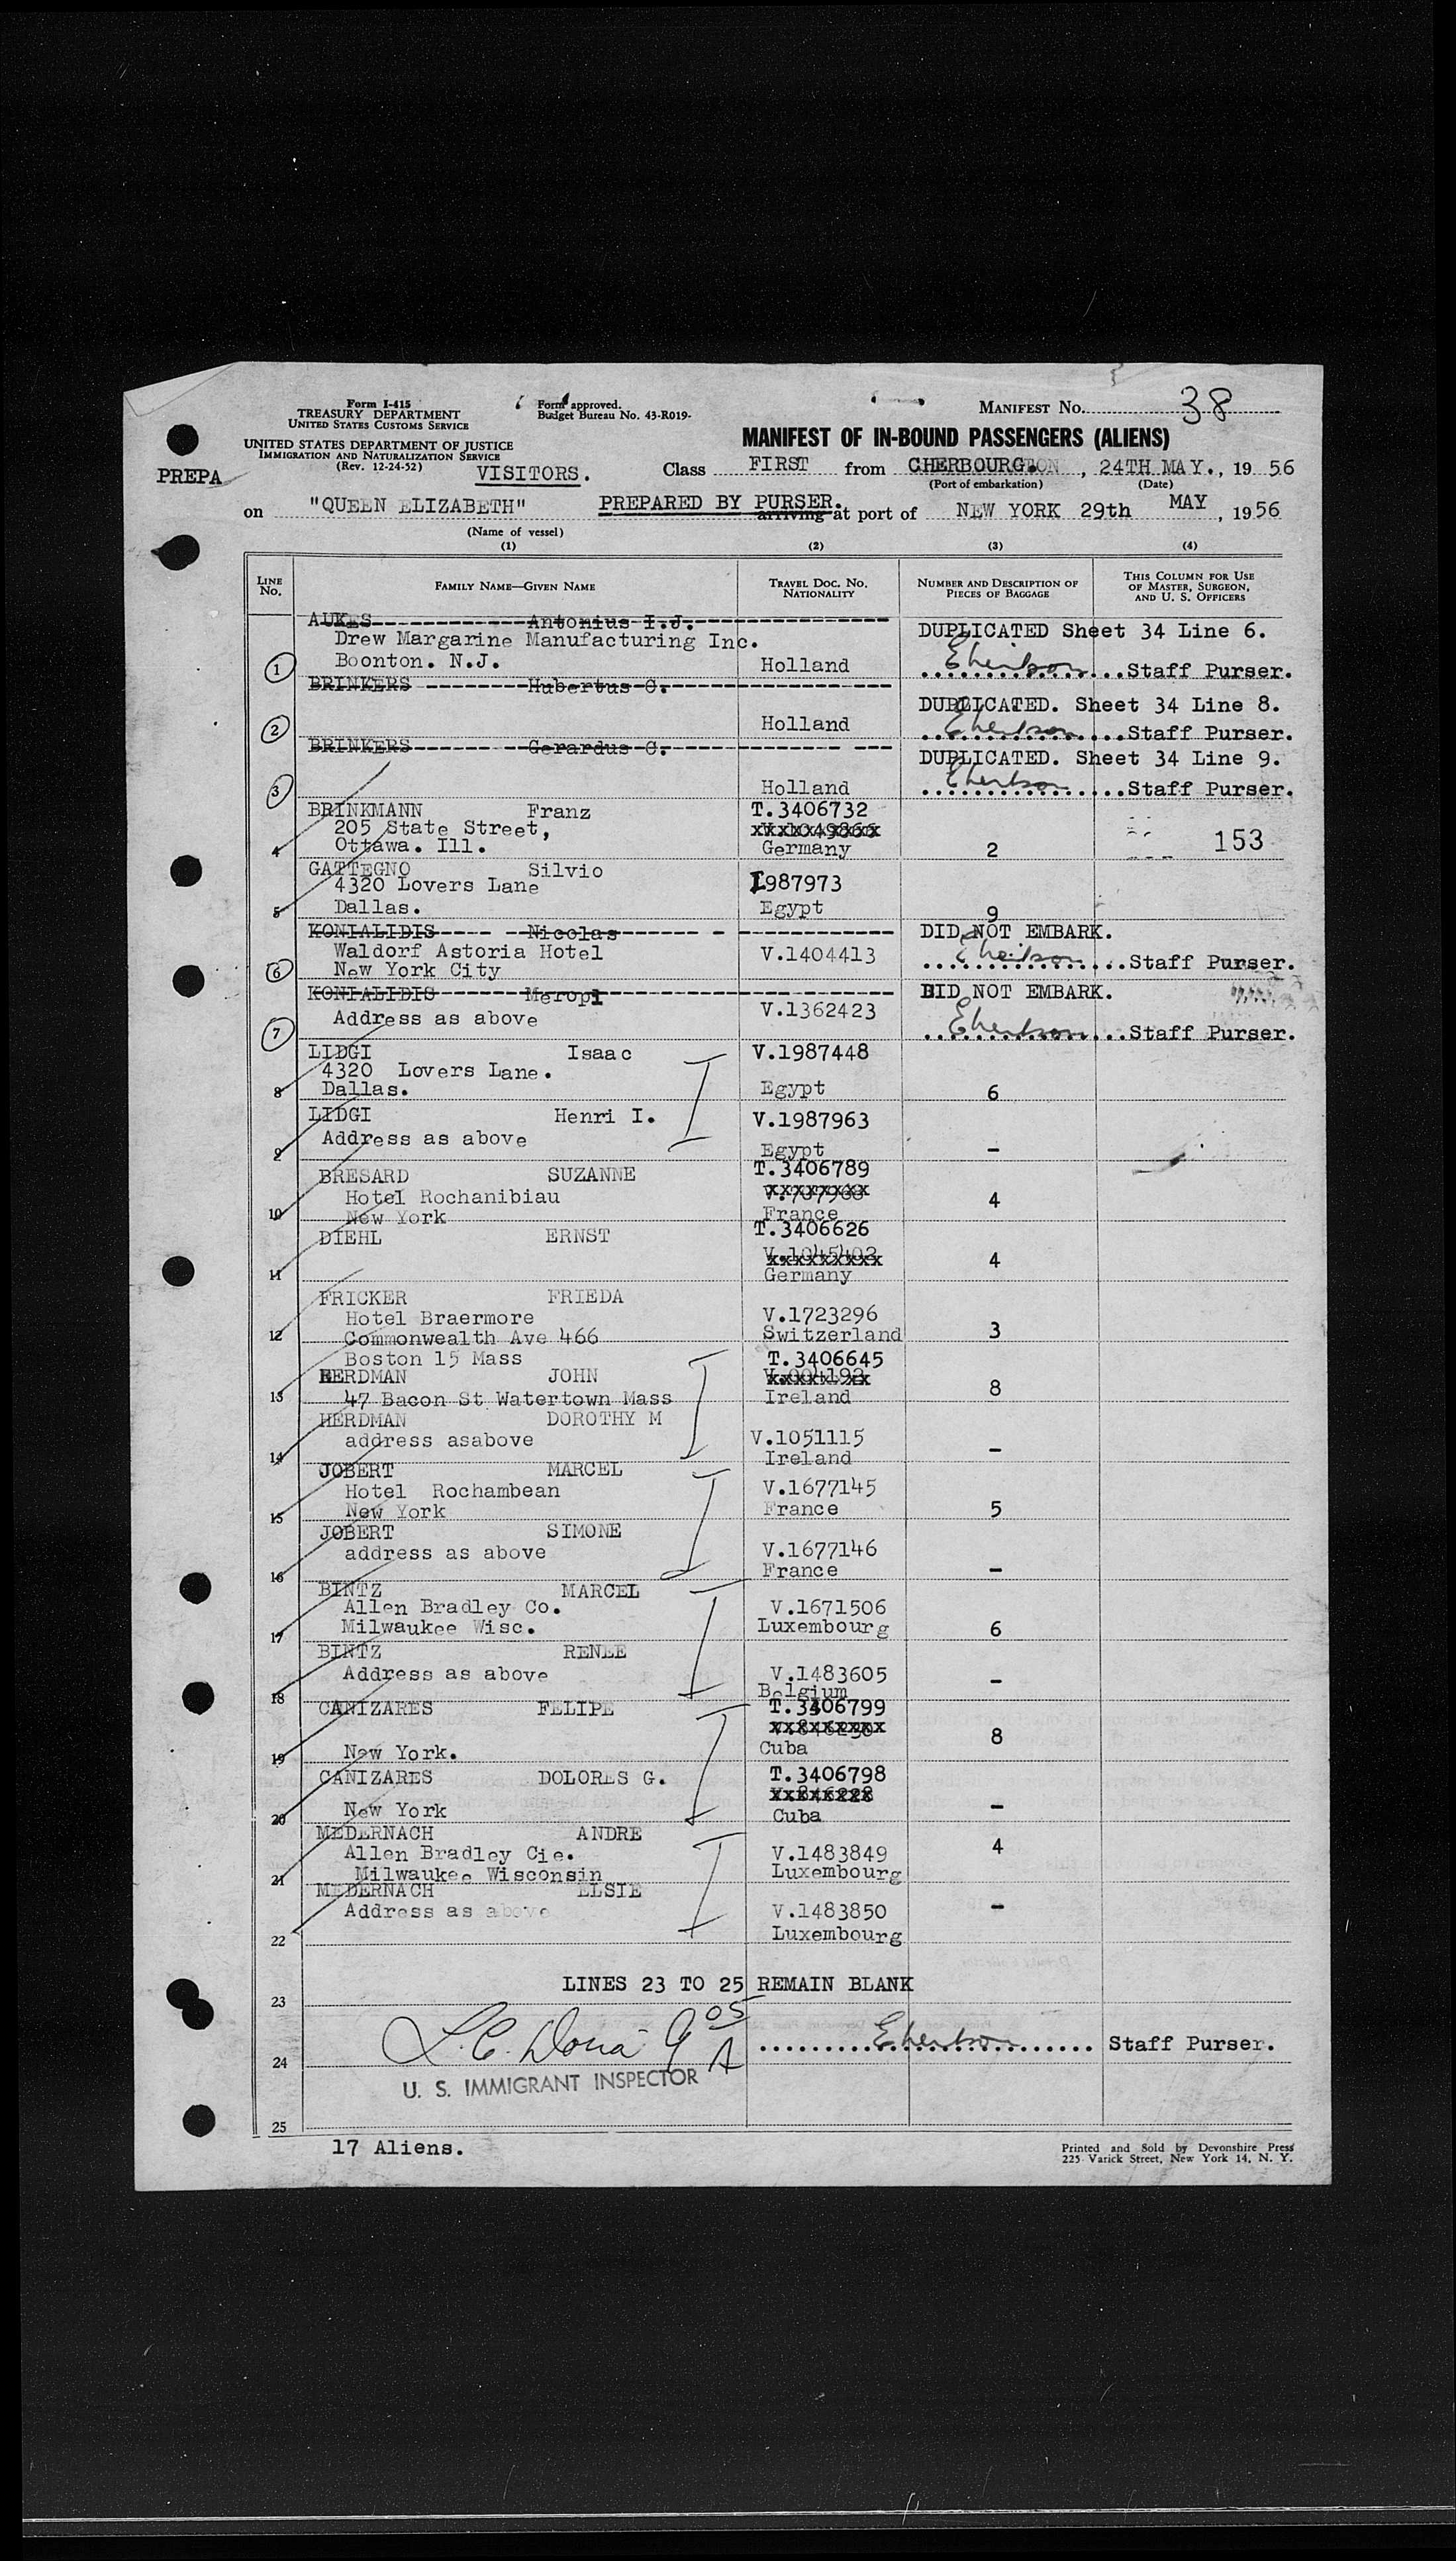 Form I-415
TREASURY DEPARTMENT
UNITED STATES CUSTOMS SERVICE
Form approved.
Budget Bureau No. 43-R019-
MANIFEST No. 38
UNITED STATES DEPARTMENT OF JUSTICE
IMMIGRATION AND NATURALIZATION SERVICE
(Rev. 12-24-52)
MANIFEST OF IN-BOUND PASSENGERS (ALIENS)
PREPA
VISITORS.
Class FIRST from CHERBOURG. , 24TH MAY., 19 56
(Port of embarkation) (Date)
on "QUEEN ELIZABETH" PREPARED BY PURSER. arriving at port of NEW YORK 29th MAY , 1956
(Name of vessel)
(1) (2) (3) (4)
LINE No. FAMILY NAME—GIVEN NAME TRAVEL DOC. NO. NATIONALITY NUMBER AND DESCRIPTION OF PIECES OF BAGGAGE THIS COLUMN FOR USE OF MASTER, SURGEON, AND U. S. OFFICERS
AUKES Antonius I.J.
Drew Margarine Manufacturing Inc. DUPLICATED Sheet 34 Line 6.
1 Boonton. N.J. Holland Staff Purser.
BRINKERS Hubertus C.
DUPLICATED. Sheet 34 Line 8.
2 Holland Staff Purser.
BRINKERS Gerardus C.
DUPLICATED. Sheet 34 Line 9.
3 Holland Staff Purser.
BRINKMANN Franz T.3406732
205 State Street,
4 Ottawa. Ill. Germany 2 153
GATTEGNO Silvio
4320 Lovers Lane I987973
5 Dallas. Egypt 9
KONIALIDIS Nicolas DID NOT EMBARK.
Waldorf Astoria Hotel V.1404413
6 New York City Staff Purser.
KONIALIDIS Meropi DID NOT EMBARK.
Address as above V.1362423
7 Staff Purser.
LIDGI Isaac V.1987448
4320 Lovers Lane.
8 Dallas. Egypt 6
LIDGI Henri I. V.1987963
Address as above
9 Egypt -
BRESARD SUZANNE T.3406789
Hotel Rochanibiau 4
10 New York France
DIEHL ERNST T.3406626
4
11 Germany
FRICKER FRIEDA
Hotel Braermore V.1723296
12 Commonwealth Ave 466 Switzerland 3
Boston 15 Mass T.3406645
HERDMAN JOHN
13 47 Bacon St Watertown Mass Ireland 8
HERDMAN DOROTHY M
address asabove V.1051115
14 Ireland -
JOBERT MARCEL
Hotel Rochambean V.1677145
15 New York France 5
JOBERT SIMONE
address as above V.1677146
16 France -
BINTZ MARCEL
Allen Bradley Co. V.1671506
17 Milwaukee Wisc. Luxembourg 6
BINTZ RENEE
Address as above V.1483605
18 Belgium -
CANIZARES FELIPE T.3406799
8
19 New York. Cuba
CANIZARES DOLORES G. T.3406798
20 New York Cuba -
MEDERNACH ANDRE 4
Allen Bradley Cie. V.1483849
21 Milwaukee Wisconsin Luxembourg
MEDERNACH ELSIE
Address as above V.1483850 -
22 Luxembourg
LINES 23 TO 25 REMAIN BLANK
23
24 Staff Purser.
U. S. IMMIGRANT INSPECTOR
25
17 Aliens.
Printed and Sold by Devonshire Press
225 Varick Street, New York 14, N. Y.